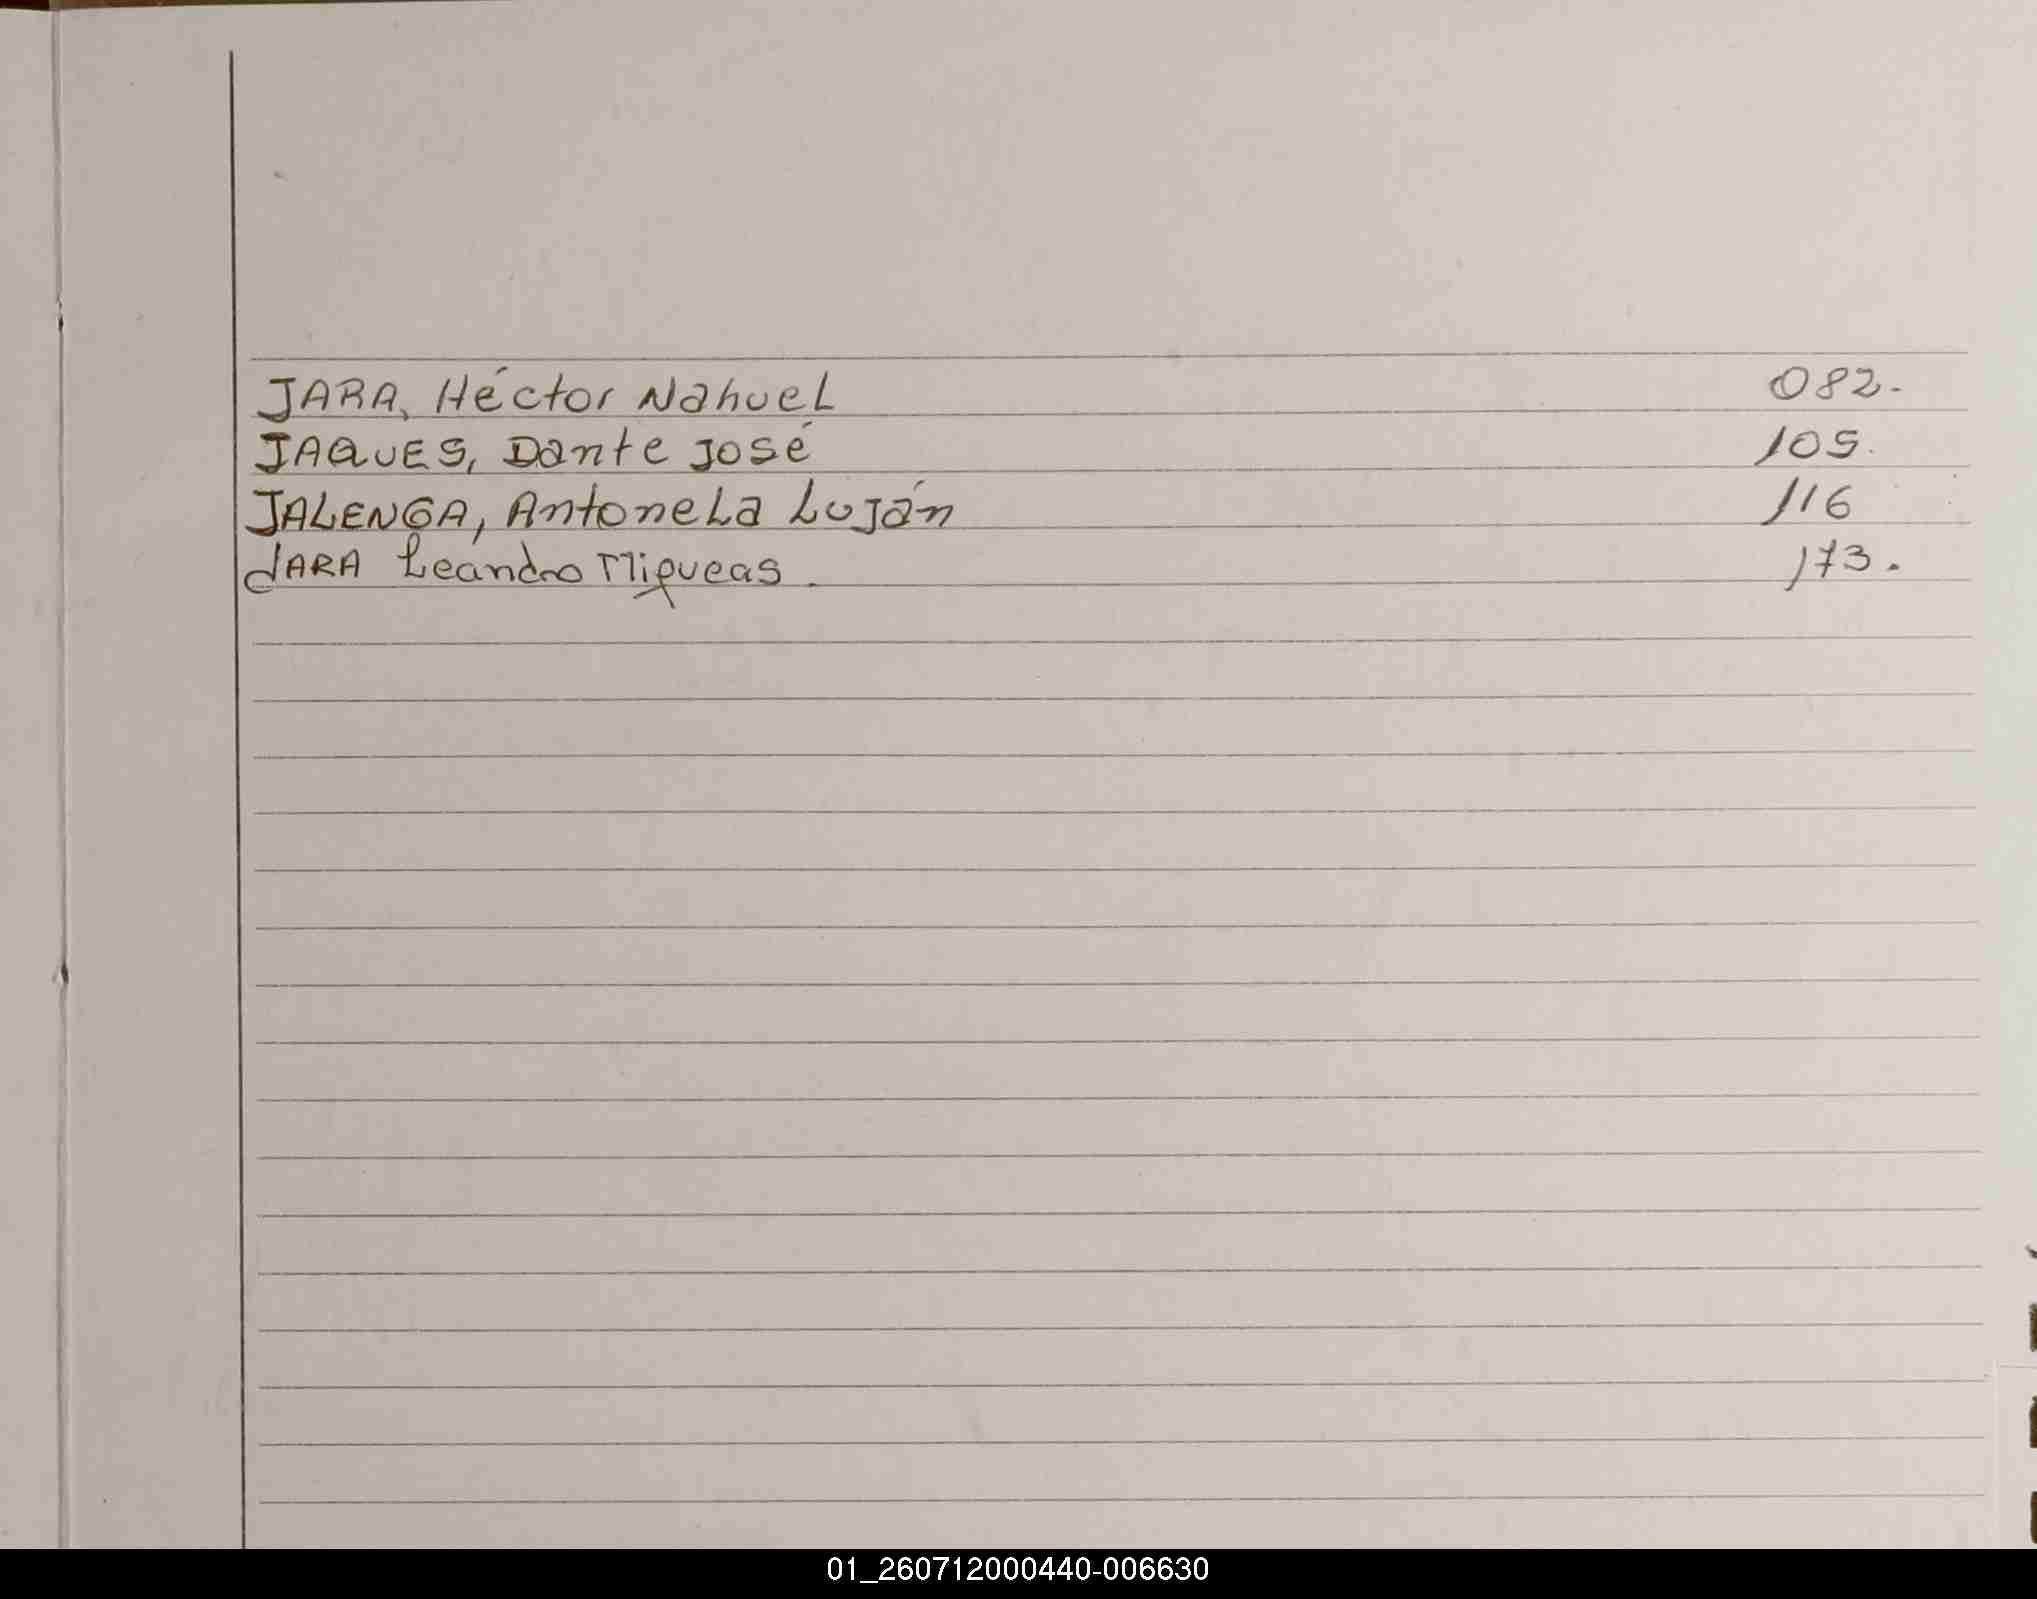 JARA, Héctor Nahuel 082.
JAQUES, Dante José 105.
JALENGA, Antonela Luján 116
JARA Leandro Miqueas. 173.
01_260712000440-006630